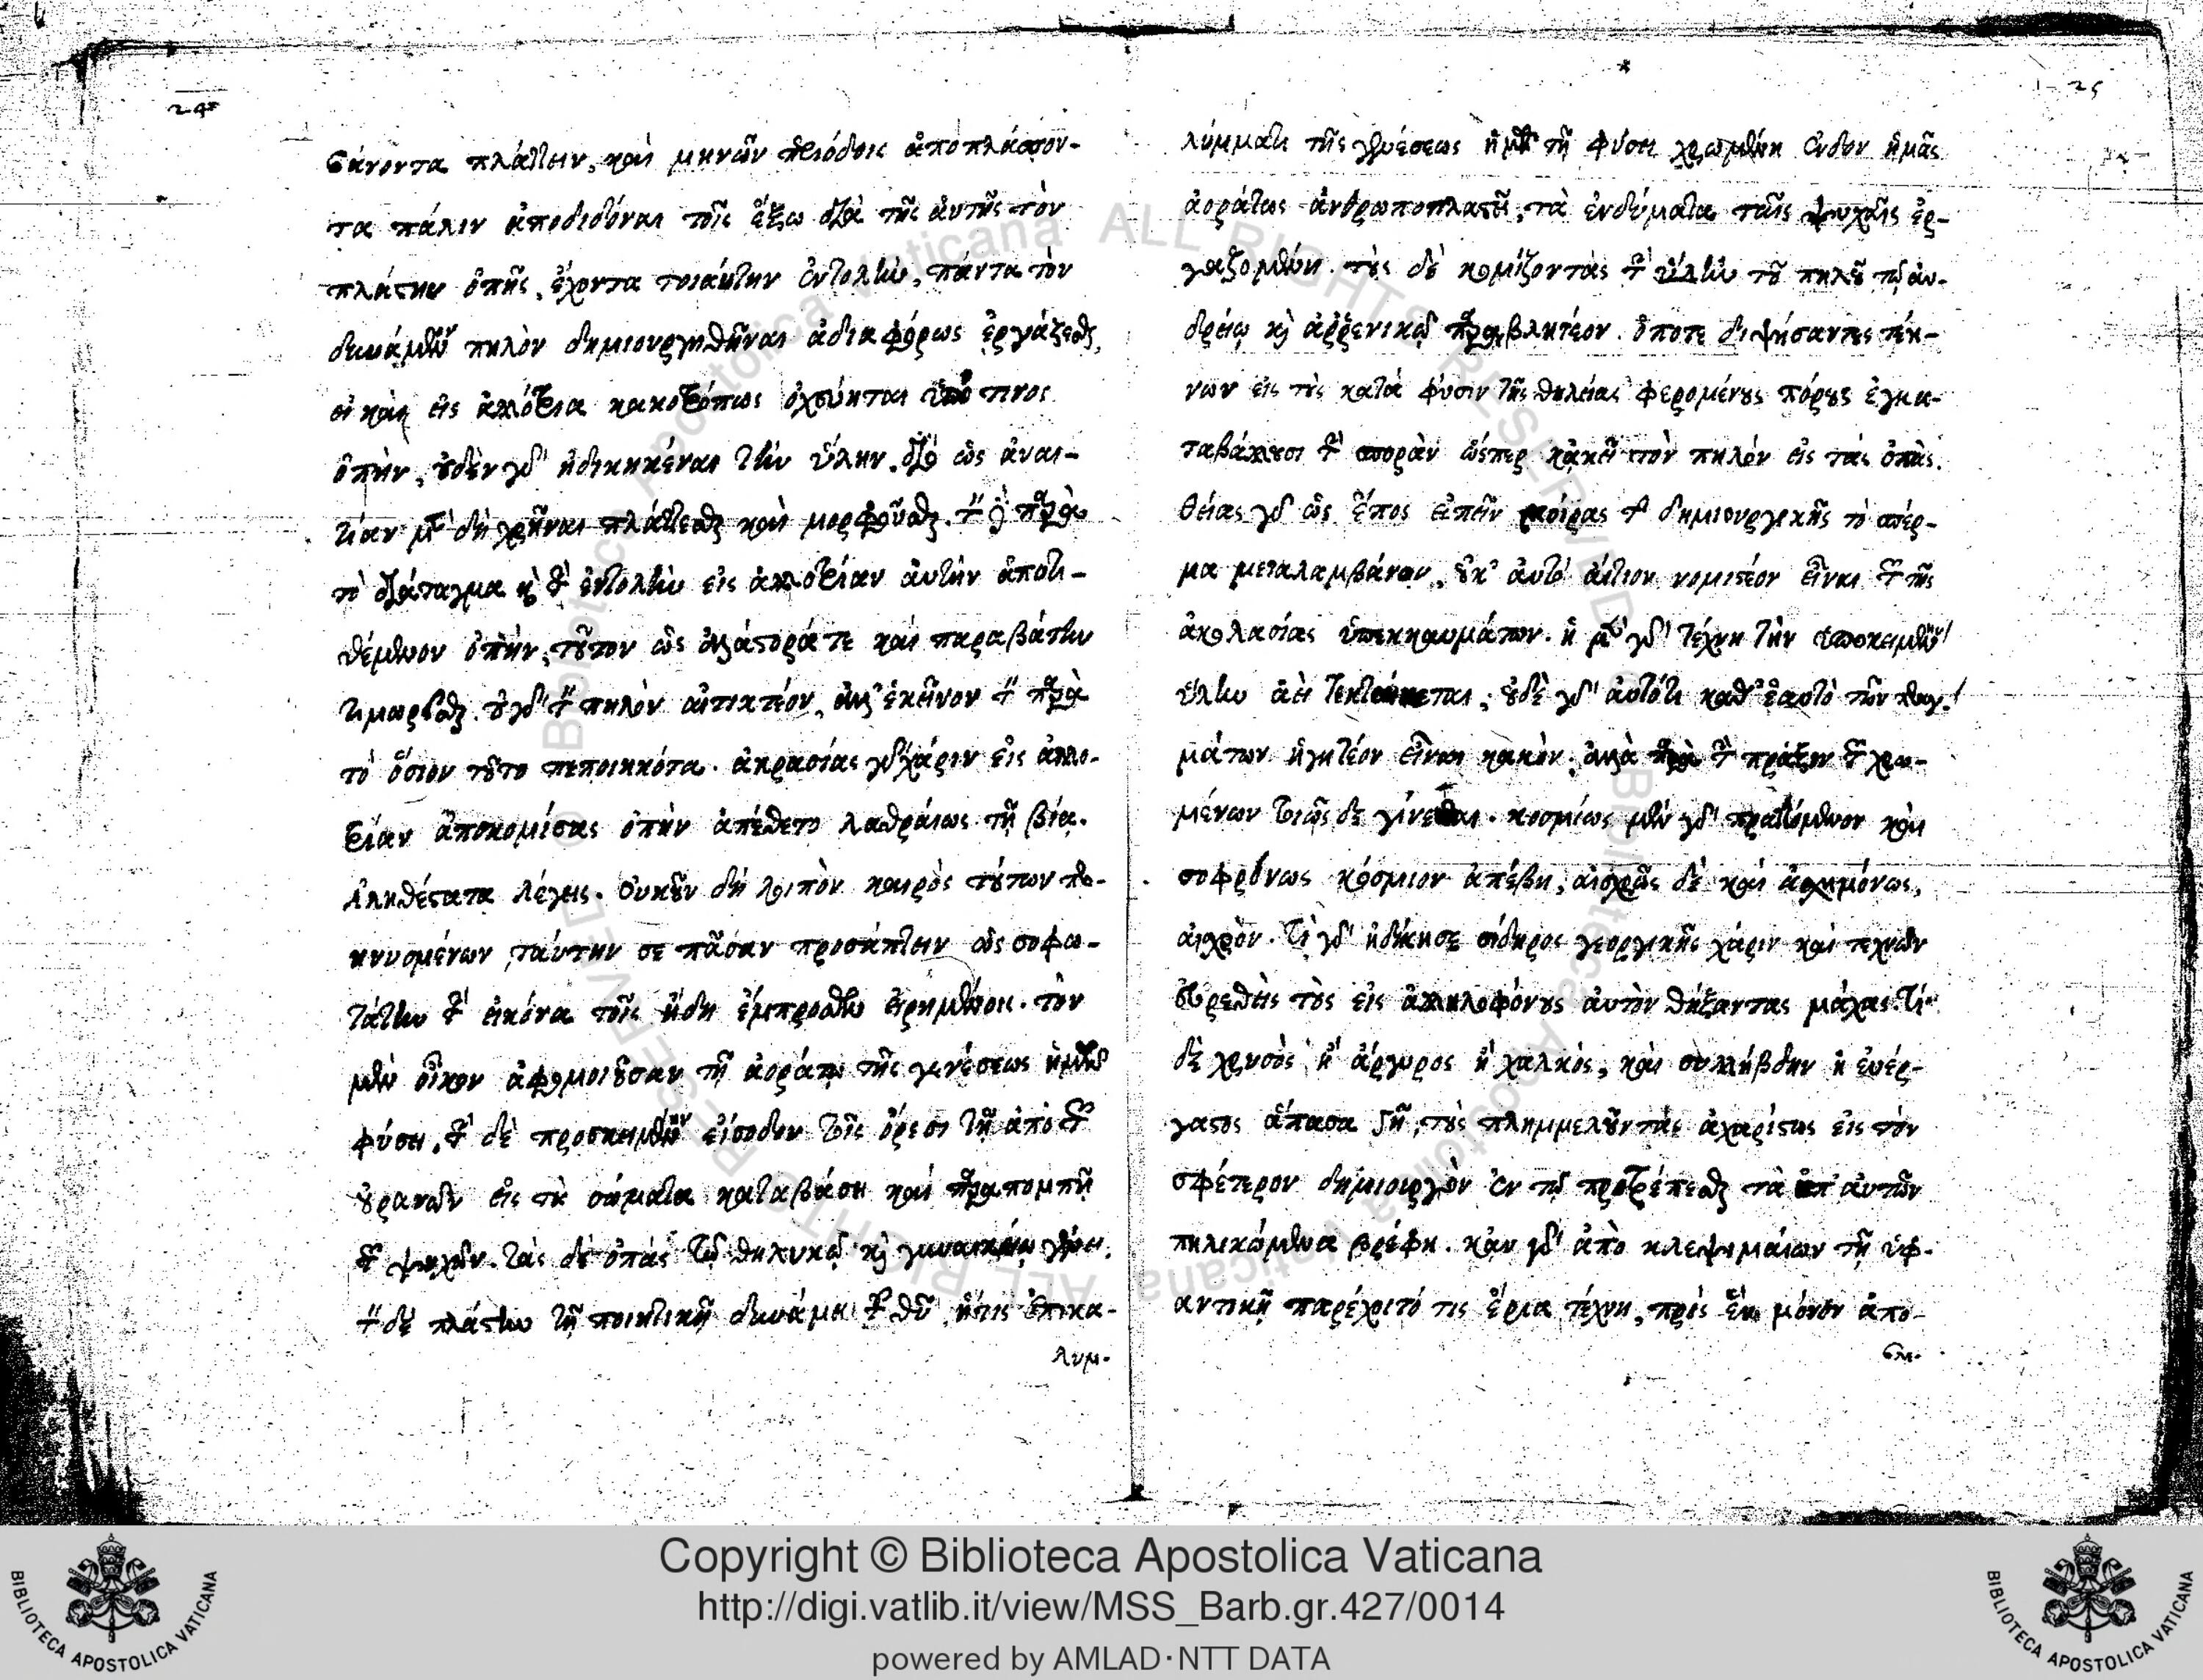 24
βάνοντα πλάττειν, καὶ μηνῶν περιόδοις ἀποπλάσσον-
τα πάλιν ἀποδιδόναι τοῖς ἔξω διὰ τῆς αὐτῆς τὸν
πλάστην ὀπῆς, ἔχοντα τοιαύτην ἐντολὴν, πάντα τὸν
δυνάμενον πηλὸν δημιουργηθῆναι ἀδιαφόρως ἐργάζεσθαι,
εἰ κἂν εἰς ἀλλότρια κακοτρόπως ὀχεύηται ὑπό τινος
ὀπὴν, οὐδὲν γὰρ ἠδικηκέναι τὴν ὕλην. διὸ ὡς ἀναι-
τίαν μὲν δὴ χρῆναι πλάττεσθαι καὶ μορφοῦσθαι. τὸν δὲ παρὰ
τὸ διάταγμα καὶ τὴν ἐντολὴν εἰς ἀλλοτρίαν αὐτὴν ἀποτι-
θέμενον ὀπὴν, τοῦτον ὡς ἀλάστορά τε καὶ παραβάτην
τιμωρεῖσθαι. οὐ γὰρ τὸν πηλὸν αἰτιατέον, ἀλλ' ἐκεῖνον τὸν παρὰ
τὸ ὅσιον τοῦτο πεποιηκότα. ἀκρασίας γὰρ χάριν εἰς ἀλλο-
τρίαν ἀποκομίσας ὀπὴν ἀπέθετο λαθραίως τῇ βίᾳ.
Ἀληθέστατα λέγεις. Οὐκοῦν δὴ λοιπὸν καιρὸς τούτων πε-
κνυσμένων ταύτην σε πᾶσαν προσάπτειν ὡς σοφω-
τάτην τὴν εἰκόνα τοῖς ἤδη ἔμπροσθεν εἰρημένοις. τὸν
μὲν οἶκον ἀφομοιοῦσαν τῇ ἀοράτῳ τῆς γενέσεως ἡμῶν
φύσει, τὴν δὲ προσκειμένην εἴσοδον τοῖς ὄρεσι τῇ ἀπὸ τῶν
οὐρανῶν εἰς τὰ σώματα καταβάσει καὶ παραπομπῇ
τῶν ψυχῶν. τὰς δὲ ὀπὰς τῷ θηλυκῷ καὶ γυναικείῳ γένει.
τὸν δὲ πλάστην τῇ ποιητικῇ δυνάμει τοῦ θεοῦ, ἥτις ἐπικα-
λυμ-
25
λύμματι τῆς γενέσεως ἡμῶν τῇ φύσει χρωμένη ἔνδον ἡμᾶς
ἀοράτως ἀνθρωποπλαστεῖ, τὰ ἐνδύματα ταῖς ψυχαῖς ἐρ-
γαζομένη. τοὺς δὲ κομίζοντας τὴν ὕλην τοῦ πηλοῦ τῷ ἀν-
δρείῳ καὶ ἀῤῥενικῷ παραβλητέον. ὁπότε διψήσαντες τέκ-
νων εἰς τοὺς κατὰ φύσιν τῆς θηλείας φερομένους πόρους ἐγκα-
ταβάλλουσι τὴν σπορὰν ὥσπερ κἀκεῖ τὸν πηλὸν εἰς τὰς ὀπάς.
θείας γὰρ ὡς ἔπος εἰπεῖν μοίρας τῆς δημιουργικῆς τὸ σπέρ-
μα μεταλαμβάνον, οὐκ αὐτὸ αἴτιον νομιστέον εἶναι τῶν τῆς
ἀκολασίας ὑπεκκαυμάτων. ἡ μὲν γὰρ τέχνη τὴν ὑποκειμένην
ὕλην ἀεὶ τεκταίνεται; οὐδὲ γὰρ αὐτό τι καθ' ἑαυτὸ τῶν πραγ-
μάτων ἡγητέον εἶναι κακὸν, ἀλλὰ παρὰ τὴν πρᾶξιν τῶν χρω-
μένων τοιῶσδε γίνεσθαι. κοσμίως μὲν γὰρ πραττόμενον καὶ
σοφρόνως κόσμιον ἀπέβη, αἰσχρῶς δὲ καὶ ἀσχημόνως,
αἰσχρόν. Τί γὰρ ἠδίκησε σίδηρος γεοργικῆς χάριν καὶ τεχνῶν
εὑρεθεὶς τοὺς εἰς ἀλληλοφόνους αὐτὸν θήξαντας μάχας. Τί
δὲ χρυσὸς ἢ ἄργυρος ἢ χαλκὸς, καὶ συλλήβδην ἡ εὐέρ-
γατος ἅπασα γῆ, τοὺς πλημμελοῦντας ἀχαρίστως εἰς τὸν
σφέτερον δημιουργὸν ἐν τῷ προτρέπεσθαι τὰ ὑπ' αὐτῶν
πηλικώμενα βρέφη. κἂν γὰρ ἀπὸ κλεψιμαίων τῇ ὑφ-
αντικῇ παρέχοιτό τις ἔρια τέχνῃ, πρὸς ἓν μόνον ἀπο-
Copyright © Biblioteca Apostolica Vaticana
http://digi.vatlib.it/view/MSS_Barb.gr.427/0014
powered by AMLAD·NTT DATA
BIBLIOTECA APOSTOLICA VATICANA
BIBLIOTECA APOSTOLICA VATICANA